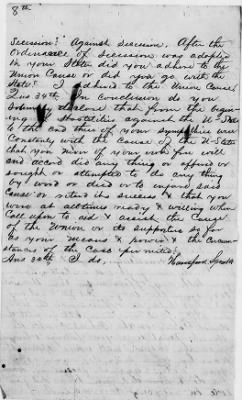 8th
Secession? Against Secession. After the
Ordinance of Secession was adopted
in your State did you adhere to the
Union Cause or did you go with the
State? I adhered to the Union Cause
Qus 34th In conclusion do you
Solemnly declare that from the beginn
ing of Hostilities against the U-States
to the end thereof your Sympathies were
Constantly with the Cause of the U-States
that you never of your own free will
and accord did any thing or offered or
sought or attempted to do any thing
by word or deed or to injure said
Cause or retard its success & that you
were at all times ready & willing when
Call upon to aid & assist the Cause
of the Union or its supporters so far
as your means & power & the Circum-
stances of the Case permitted?
Ans 34th I do.